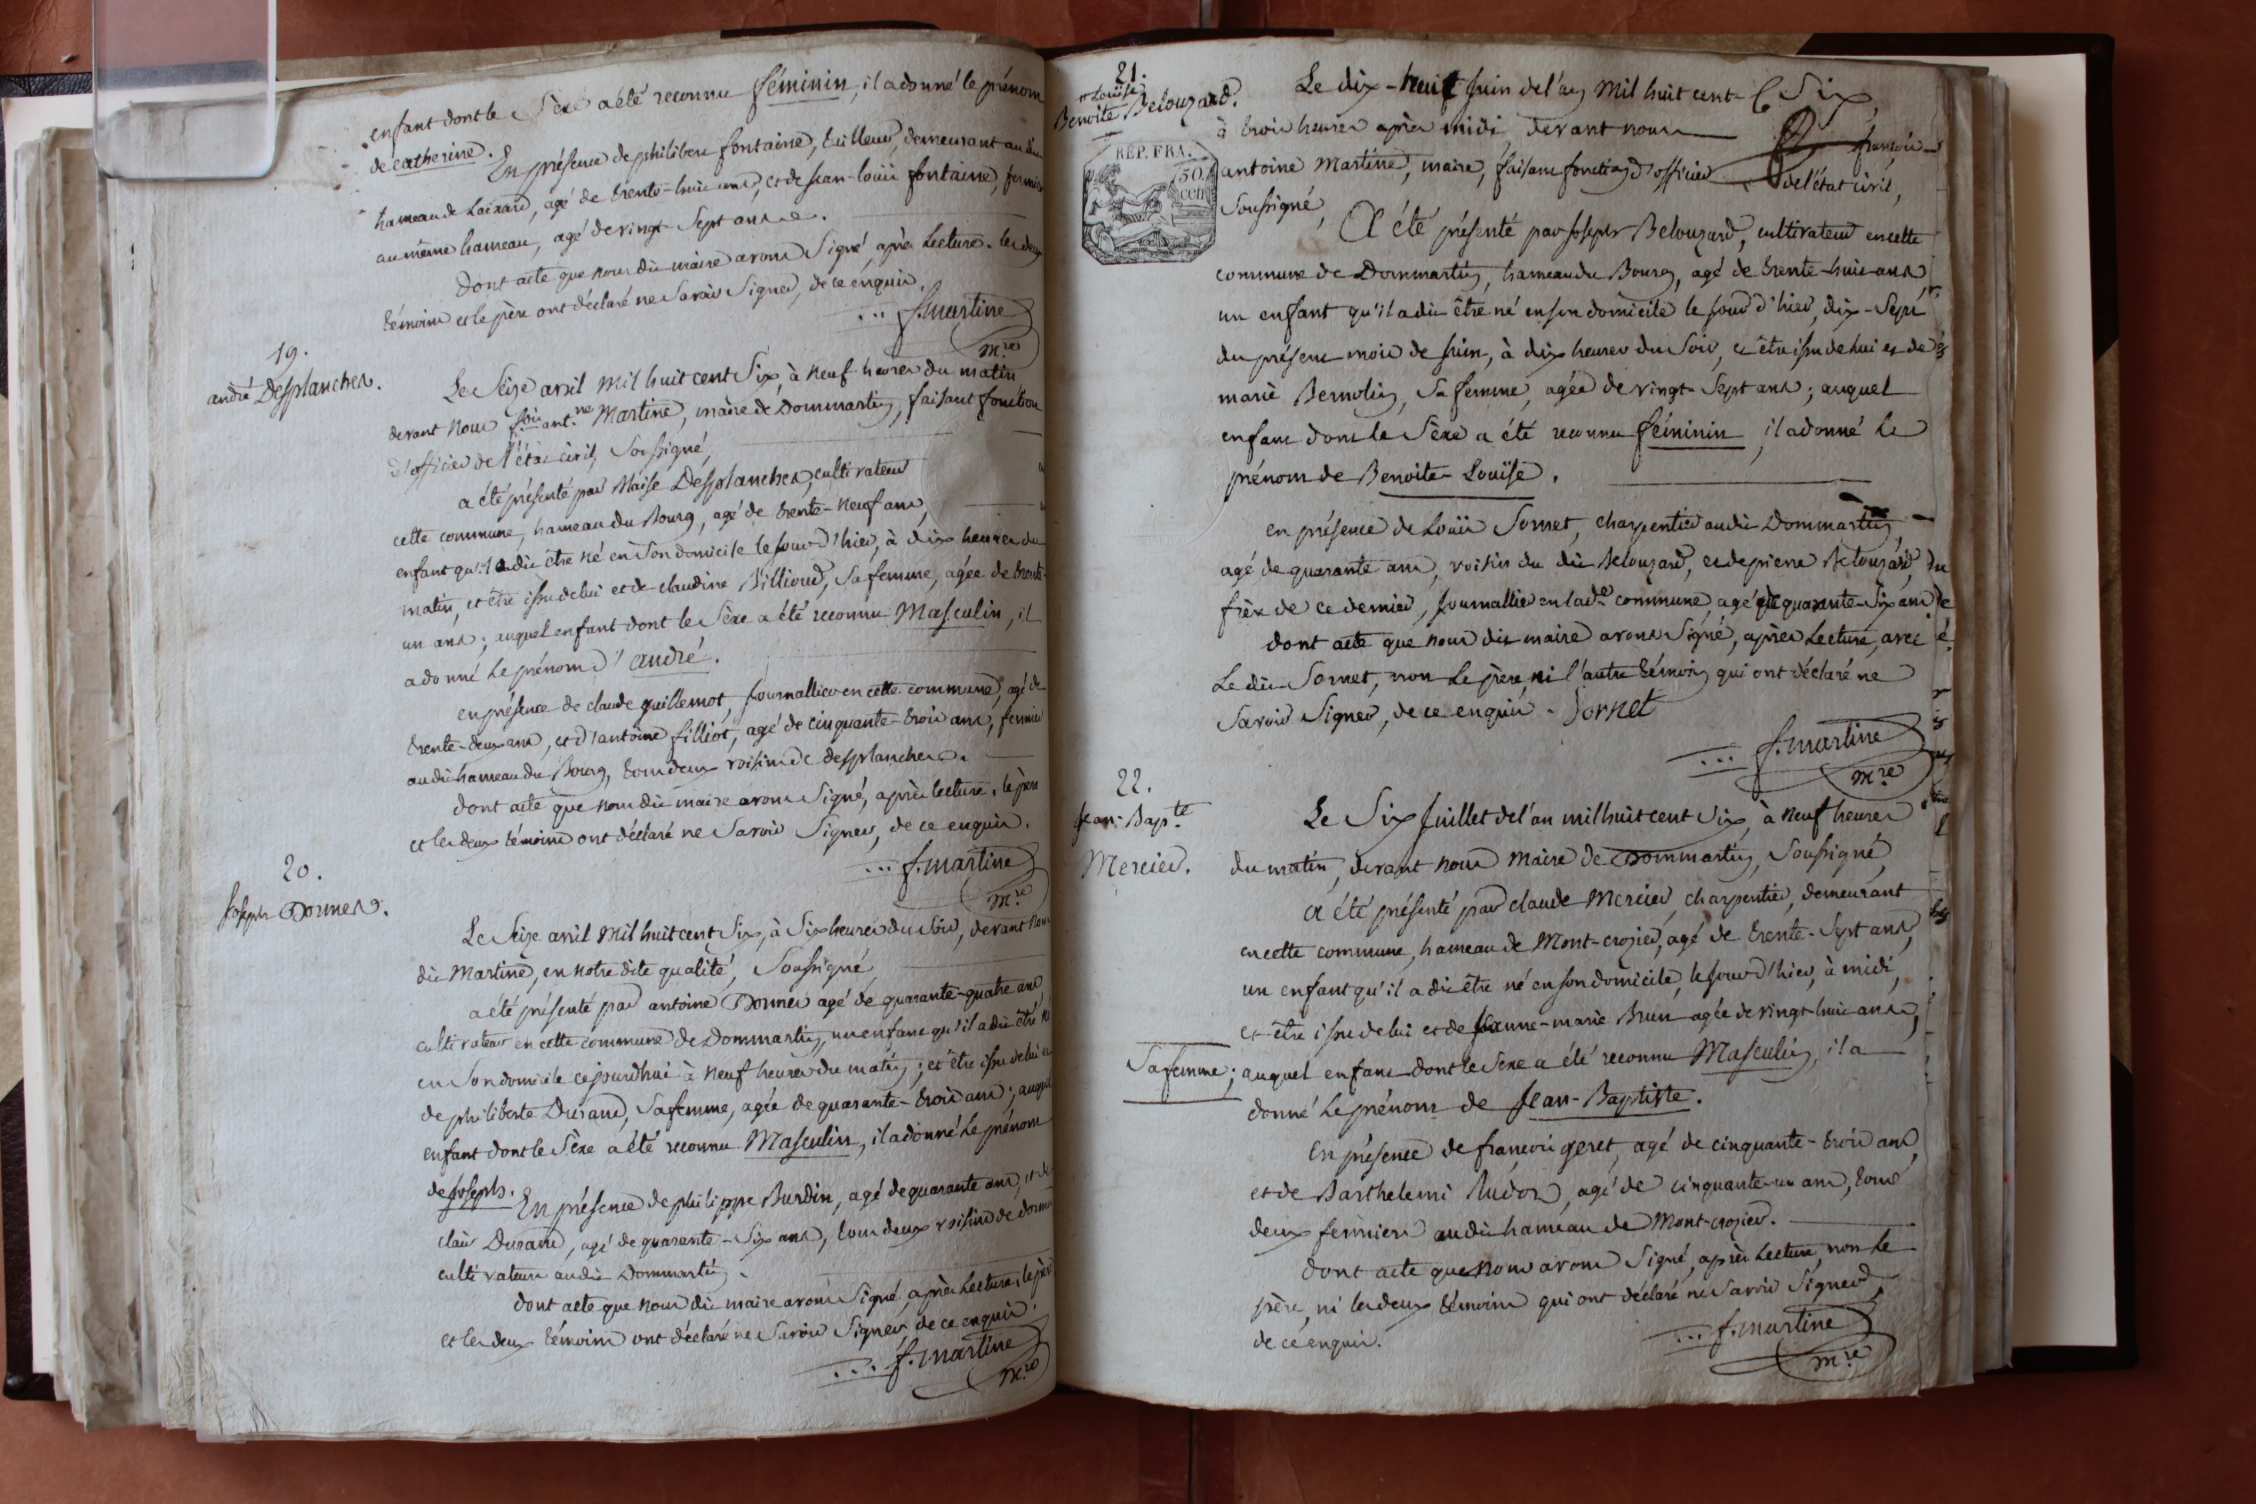 enfant dont le Sèxe a été reconnu féminin, il a donné le prénom
de catherine. En présence de philibert fontaine, tuilleur, demeurant au dit
hameau de Loizard, agé de trente-huit ans, et de jean-louis fontaine, fermier
au même hameau, agé de vingt-Sept ans.
Dont acte que nous dit maire avons Signé, après Lecture. les deux
témoins et le père ont déclaré ne Savoir Signer, de ce enquis.
f. martine
m.re
19.
andré Desplanches.
Le Seize avril mil huit cent Six, à neuf heures du matin
devant nous f.ois ant.ne Martine, maire de Dommartin, faisant fonction
d'officier de l'état civil, Soussigné,
a été présenté par Blaise Desplanches, cultivateur
cette commune, hameau du Bourg, agé de trente-neuf ans,
enfant qu'il a dit être né en Son domicile le jour d'hier, à dix heures du
matin, et être issu de lui et de claudine Billioud, Sa femme, agée de trente-
un ans; auquel enfant dont le Sèxe a été reconnu Masculin, il
a donné le prénom d'andré.
en présence de claude guillemot, journallier en cette commune, agé de
trente-deux ans, et d'antoine filliot, agé de cinquante-trois ans, fermier
au dit hameau du Bourg, tous deux voisins de desplanches.
dont acte que nous dit maire avons Signé, après lecture. le père
et les deux témoins ont déclaré ne Savoir Signer, de ce enquis.
f. martine
m.re
20.
Joseph Dormer.
Le Seize avril mil huit cent Six, à Six heures du Soir, devant nous
dit Martine, en notre dite qualité, Soussigné,
a été présenté par antoine Dormer agé de quarante-quatre ans
cultivateur en cette commune de Dommartin, un enfant qu'il a dit être né
en Son domicile cejourd'hui à neuf heures du matin; et être issu de lui et
de philiberte Durand, Sa femme, agée de quarante-trois ans; auquel
enfant dont le Sèxe a été reconnu Masculin, il a donné le prénom
de joseph. En présence de philippe Burdin, agé de quarante ans, et de
clair Durand, agé de quarante-Six ans, tous deux voisins de dormer
cultivateurs au dit Dommartin.
dont acte que nous dit maire avons Signé, après Lecture, le père
et les deux témoins ont déclaré ne Savoir Signer de ce enquis.
f. martine
m.re
21.
Louïse
Benoite Belouzard.
REP. FRA.
50.
cen
Le dix-huit Juin de l'an mil huit cent Six,
à trois heures après midi devant nous françois
antoine Martine, maire, faisant fonction d'officier de l'état civil,
Soussigné,
A été présenté par Joseph Belouzard, cultivateur en cette
commune de Dommartin, hameau du Bourg, agé de trente-huit ans,
un enfant qu'il a dit être né en son domicile le jour d'hier, dix-Sept
du présent mois de juin, à dix heures du Soir, et être issu de lui et de
marie Bernolin, Sa femme, agée de vingt-Sept ans; auquel
enfant dont le Sèxe a été reconnu féminin, il a donné le
prénom de Benoite-Louïse.
en présence de Louis Sornet, charpentier au dit Dommartin,
agé de quarante ans, voisin du dit Belouzard, et de pierre Belouzard,
frère de ce dernier, journallier en lad.e commune agé de quarante-Six ans
dont acte que nous dit maire avons Signé, après Lecture, avec
Le dit Sornet, non le père, ni l'autre témoin qui ont déclaré ne
Savoir Signer, de ce enquis. Sornet
f. martine
m.re
22.
Jean-Bap.te
Mercier.
Le Six Juillet de l'an mil huit cent Six, à neuf heures
du matin, devant nous maire de Dommartin, Soussigné,
A été présenté par claude Mercier, charpentier, demeurant
en cette commune, hameau de Mont-crozier, agé de trente-Sept ans,
un enfant qu'il a dit être né en son domicile, le jour d'hier, à midi,
et être issu de lui et de jeanne-marie Brun agée de vingt-huit ans,
Sa femme; auquel enfant dont le Sexe a été reconnu Masculin, il a
donné le prénom de Jean-Baptiste.
En présence de françois geret, agé de cinquante-trois ans,
et de Barthelemi agé de cinquante-un ans, tous
deux fermiers au dit hameau de Mont-crozier.
dont acte que nous avons Signé, après Lecture, non le
père, ni les deux témoins qui ont déclaré ne Savoir Signer,
de ce enquis.
f. martine
m.re